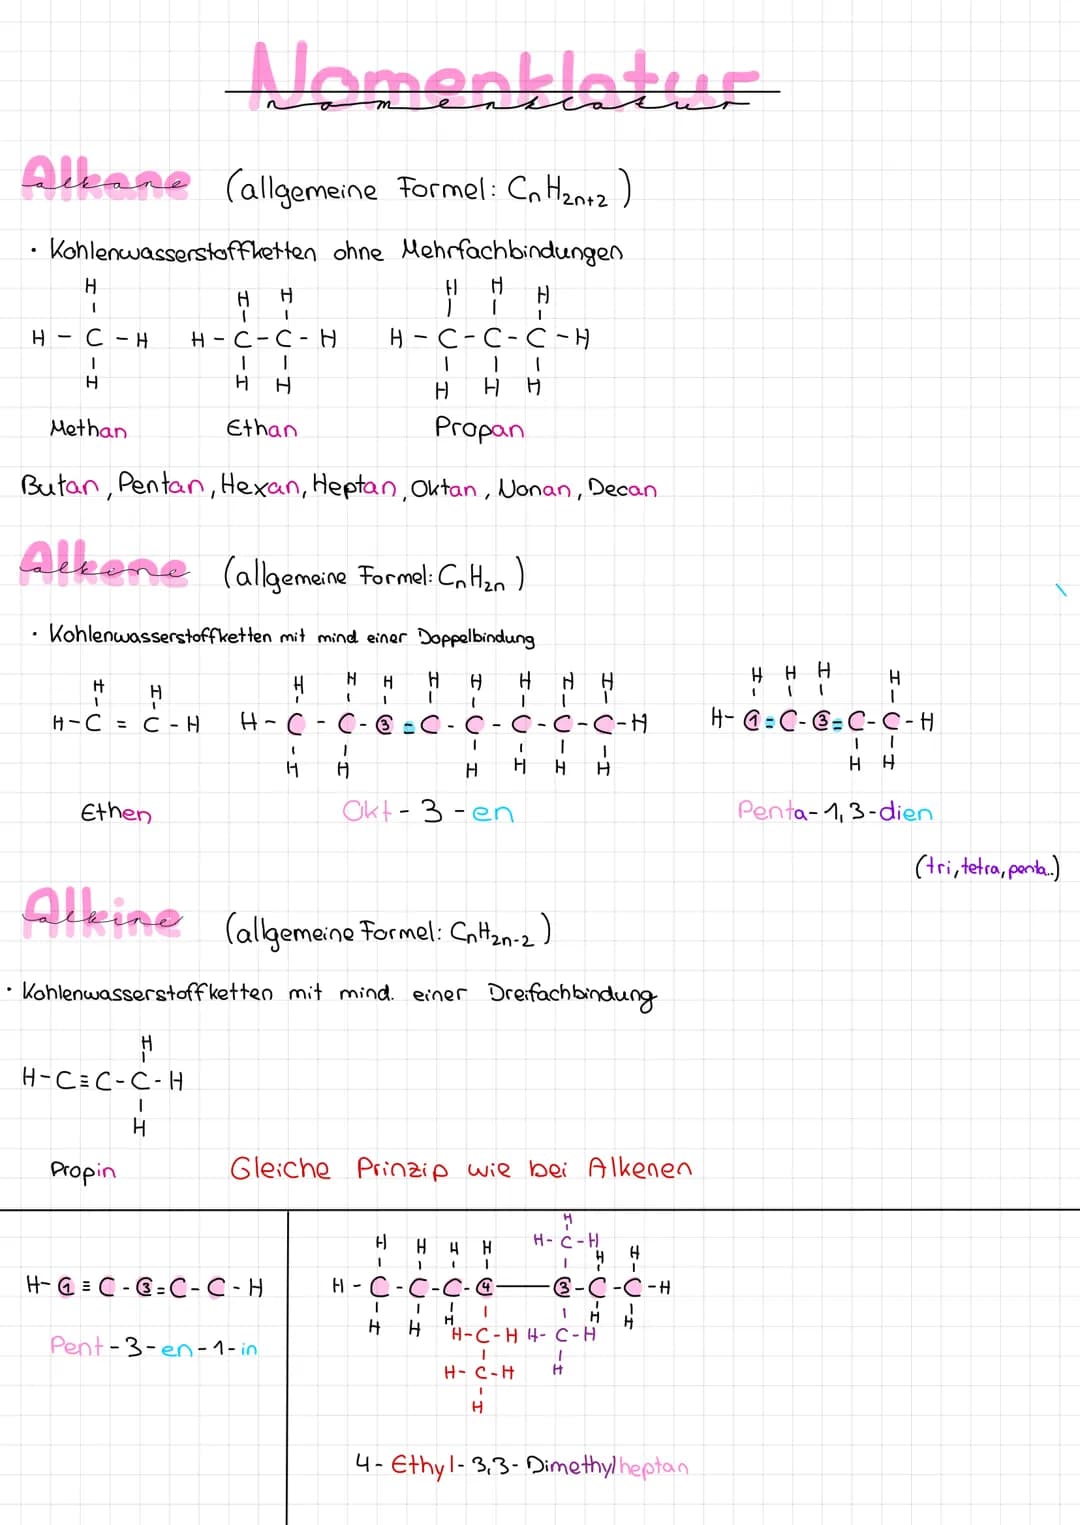 Nomenklatur
nomenklatur
Alkane (allgemeine Formel: CnH2n+2)
alkane
· Kohlenwasserstoffketten ohne Mehrfachbindungen
H H H H H H
H - C - H H - C - C - H H - C - C - C - H
H H H H H H
Methan Ethan Propan
Butan, Pentan, Hexan, Heptan, Oktan, Nonan, Decan
Alkene (allgemeine Formel: CnH2n)
alkene
· Kohlenwasserstoffketten mit mind einer Doppelbindung
H H H H H H H H H H H H H H
H - C = C - H H - C - C - ③ = C - C - C - C - C - H H - ① = C - ③ = C - C - H
H H H H H H H H
Ethen Okt - 3 - en Penta - 1,3 - dien
(tri, tetra, penta..)
Alkine (allgemeine Formel: CnH2n-2)
alkine
· Kohlenwasserstoffketten mit mind. einer Dreifachbindung
H
H - C ≡ C - C - H
H
Propin Gleiche Prinzip wie bei Alkenen
H
H H H H H - C - H H H
H - ① ≡ C - ③ = C - C - H H - C - C - C - ④ — ③ - C - C - H
H H H H H
Pent - 3 - en - 1 - in H - C - H H - C - H
H - C - H H
H
4 - Ethyl - 3,3 - Dimethylheptan